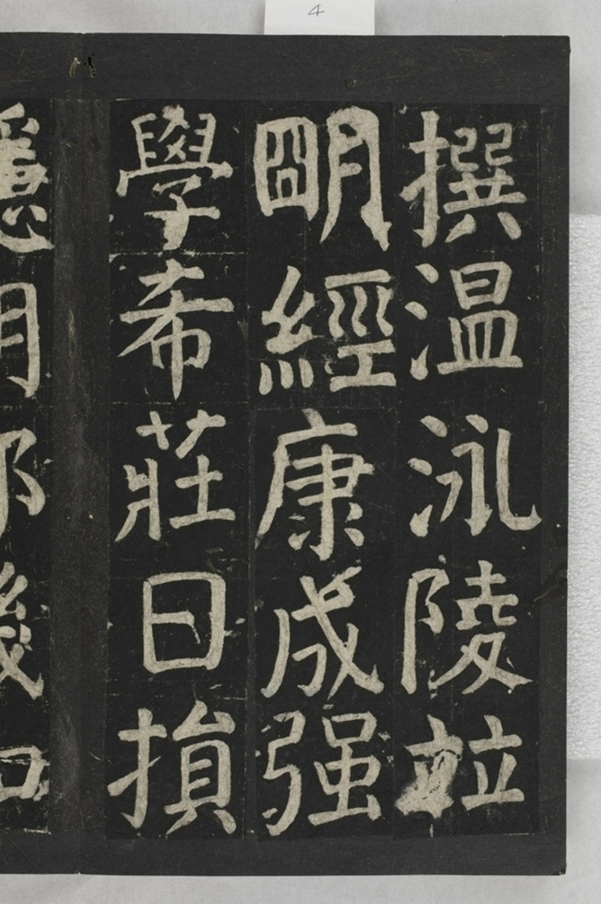 撰温泳陵竝
朙經康成强
學希莊日損